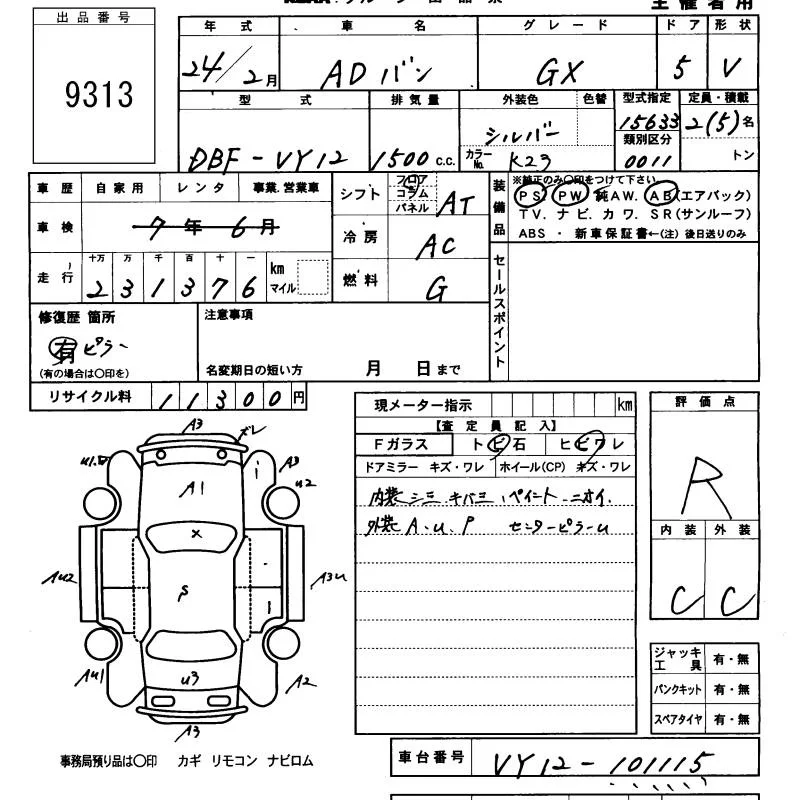 出品番号
9313
主催者用
年式 車名 グレード ドア 形状
24/2月 ADバン GX 5 V
型式 排気量 外装色 色替 型式指定 定員・積載
DBF-VY12 1500 c.c. シルバー 15633 2(5)名
カラーNo. K23 類別区分 0011 トン
車歴 自家用 レンタ 事業.営業車
車検 7年6月
走行 十万 万 千 百 十 一 km マイル
2 3 1 3 7 6
シフト フロア コラム パネル AT
冷房 AC
燃料 G
装備品 ※純正のみ〇印をつけて下さい
PS PW 純AW. AB(エアバック)
TV. ナビ. カワ. SR(サンルーフ)
ABS ・ 新車保証書←(注) 後日送りのみ
セールスポイント
修復歴 箇所
有 ピラー
(有の場合は〇印を)
注意事項
名変期日の短い方 月 日まで
リサイクル料 11300円
現メーター指示 km
【査定員記入】
Fガラス トビ石 ヒビワレ
ドアミラー キズ・ワレ ホイール(CP) キズ・ワレ
内装 シミ.キバミ.ペイント.ニオイ.
外装 A.U.P センターピラーU
評価点
R
内装 外装
C C
ジャッキ工具 有・無
パンクキット 有・無
スペアタイヤ 有・無
A3 ズレ
A3
U2
A1
X
AU2
A3U
P
AU1
U3
A2
A3
事務局預り品は〇印 カギ リモコン ナビロム
車台番号 VY12-101115